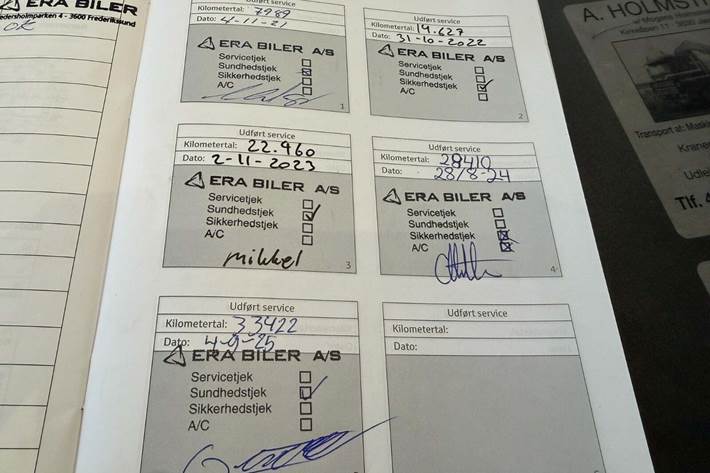 ERA BILER
edersholmparken 4 - 3600 Frederikssund
OK
Udført service
Kilometertal: 7989
Dato: 4-11-21
ERA BILER A/S
Servicetjek
Sundhedstjek
Sikkerhedstjek
A/C
1
Udført service
Kilometertal: 19.627
Dato: 31-10-2022
ERA BILER A/S
Servicetjek
Sundhedstjek
Sikkerhedstjek
A/C
2
Udført service
Kilometertal: 22.960
Dato: 2-11-2023
ERA BILER A/S
Servicetjek
Sundhedstjek
Sikkerhedstjek
A/C
mikkel
3
Udført service
Kilometertal: 28410
Dato: 28/8-24
ERA BILER A/S
Servicetjek
Sundhedstjek
Sikkerhedstjek
A/C
4
Udført service
Kilometertal: 33422
Dato: 4-9-25
ERA BILER A/S
Servicetjek
Sundhedstjek
Sikkerhedstjek
A/C
Udført service
Kilometertal:
Dato:
A. HOLMSTR
Transport af: Maski
Krane
Udle
Tlf. 4